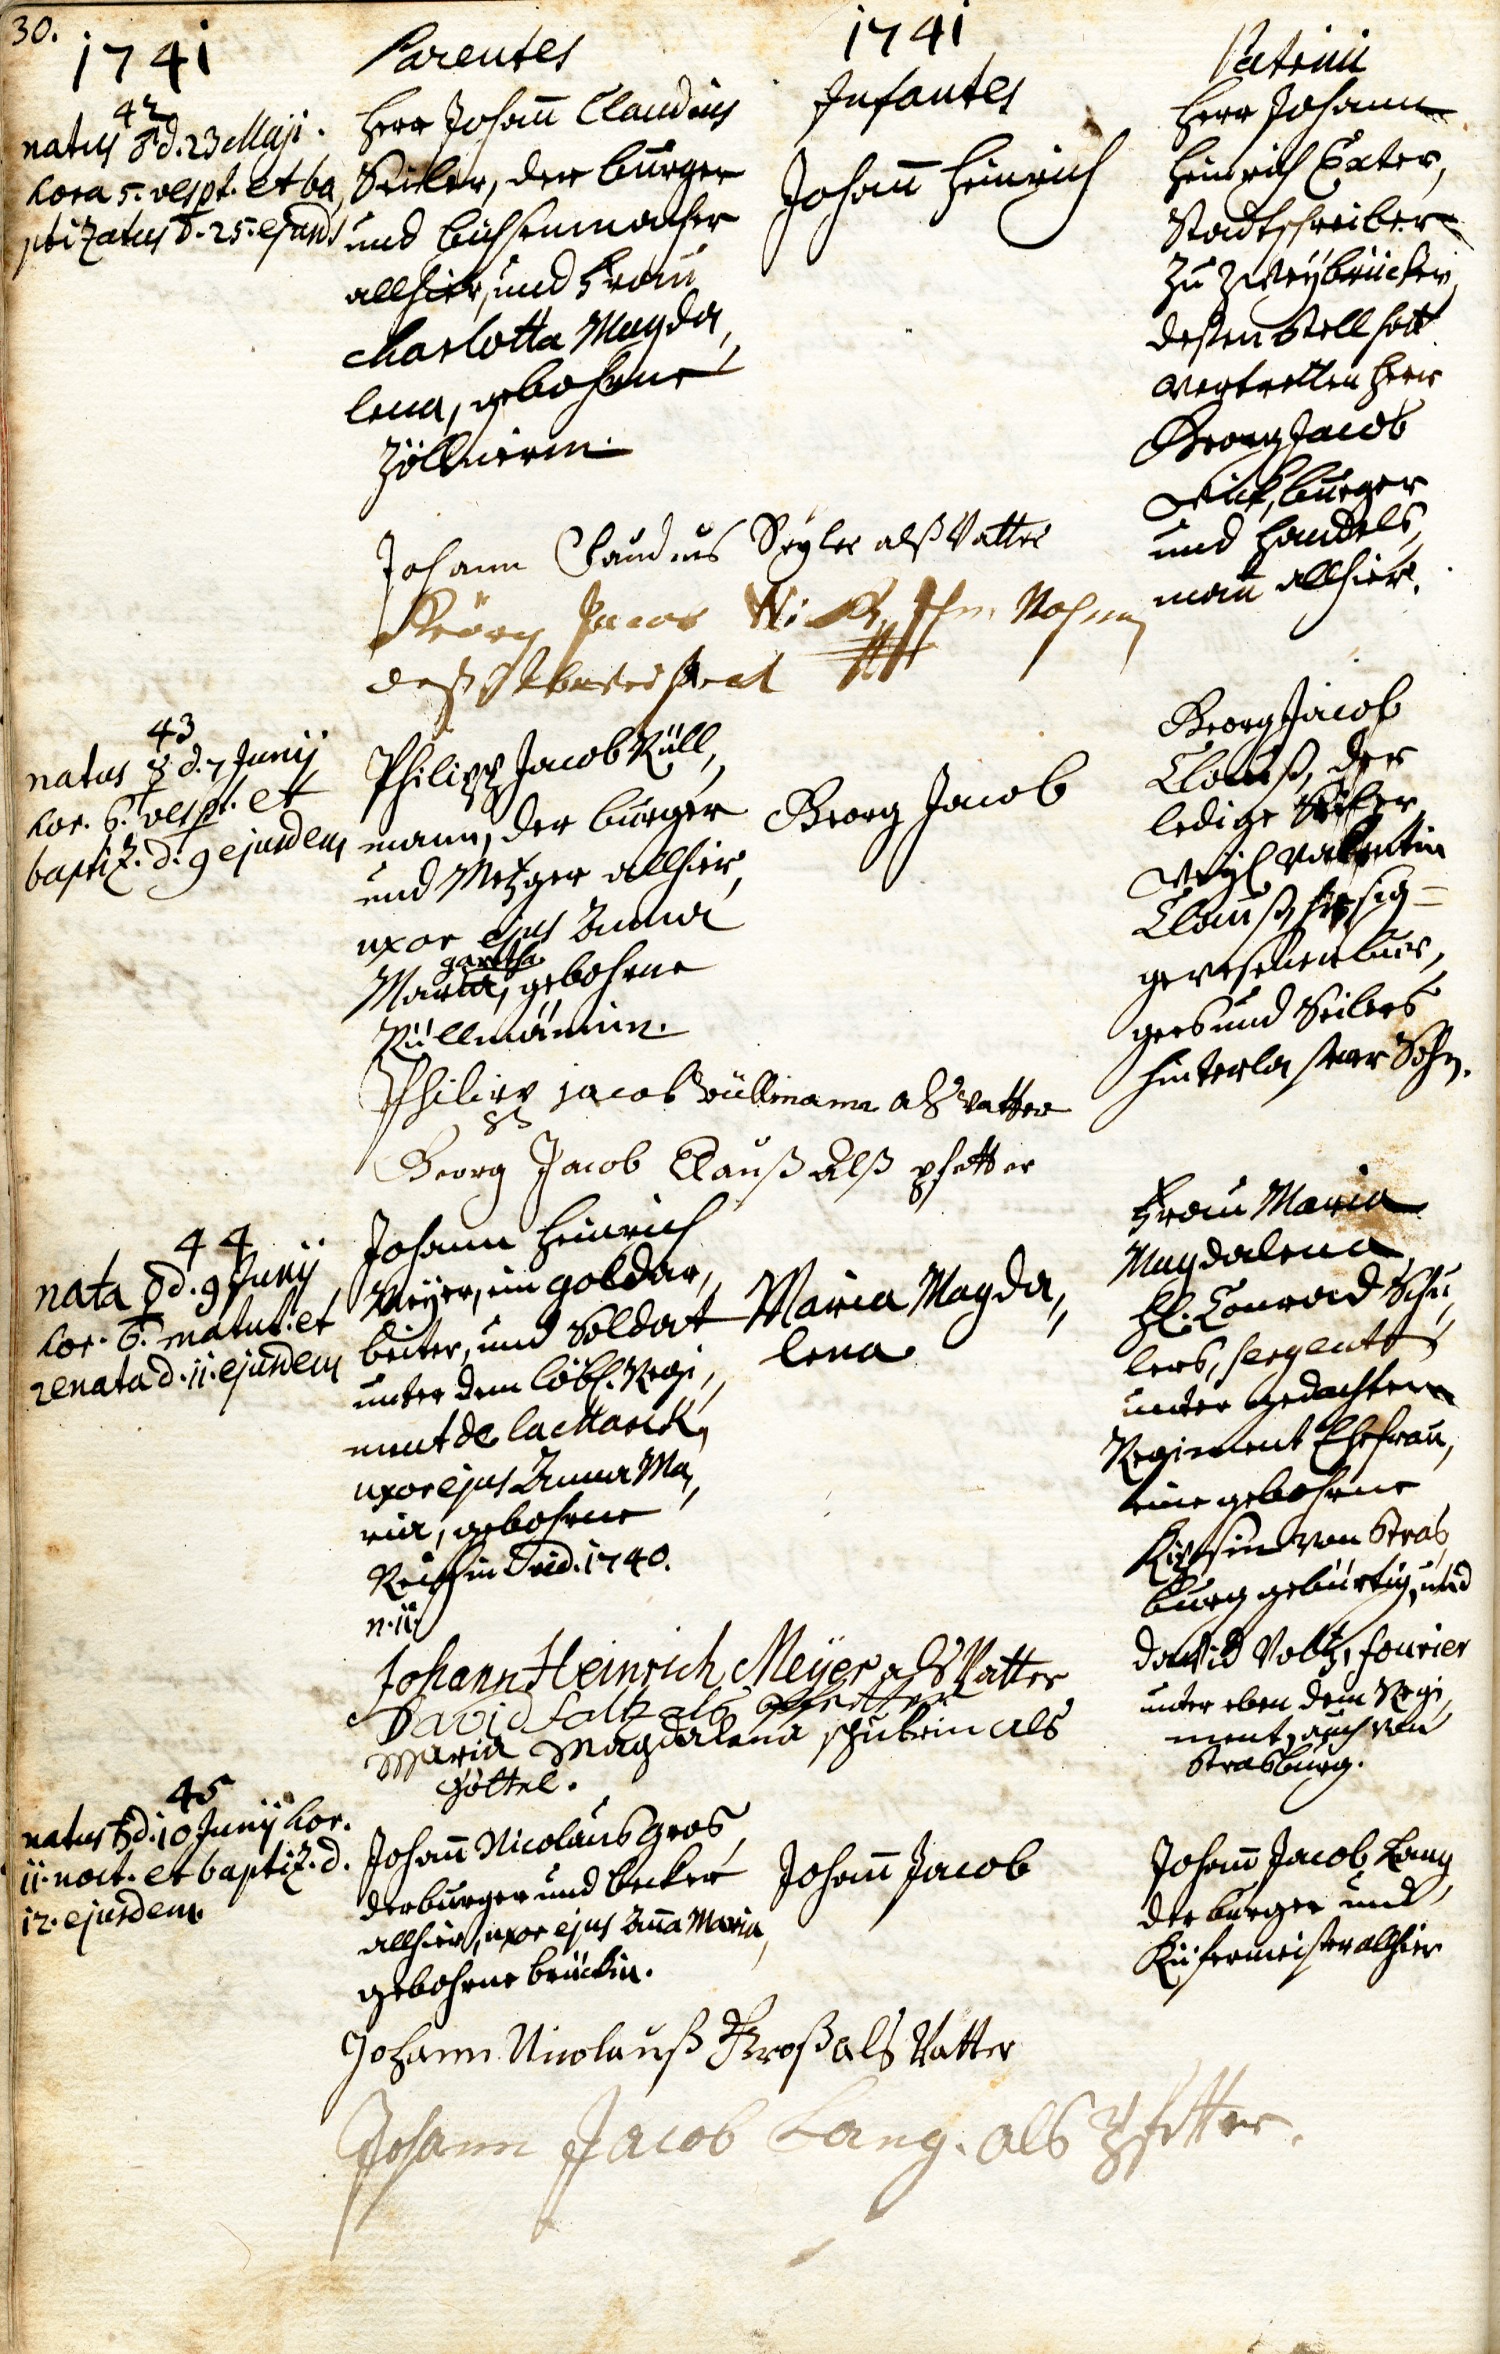 30.
1741
Parentes
1741
Infantes
Patrini
42
natus d. 23 Maji.
hora 5. vespt. et ba,
ptizatus d. 25. ejusd.
Herr Johann Claudius
Seiler, der burger
und büchsenmacher
allhier, und Frau
Charlotta Magda,
lena, gebohrne
Zöllnerin.
Johann Heinrich
Herr Johann
Heinrich Exter,
Stadtschreiber
zu Zweybrücken,
deßen Stell hatt
vertretten Herr
Georg Jacob
Wick, burger
und Handels,
mann allhier.
Johann Claudius Seyler alß Vatter
Georg Jacob Wick, Im Nahmen
deß
43
natus d. 7 Junij
hor. 6. vespt. et
baptiz. d. 9 ejusdem
Philipp Jacob Rüll,
mann, der burger
und Metzger allhier,
uxor ejus Anna
garetha
Maria, gebohrne
Rüllmännin.
Georg Jacob
Georg Jacob
Clauß, der
ledige Seiler
weyl. Valentin
Clauß, hiesig-
gewesenen bur,
gers und Seilers
hinterlaßener Sohn.
Philipp jacob rüllmann als vatter
Georg Jacob Clauß alß pfetter
44
nata d. 9 Junij
hor. 6. matut. et
renata d. 11. ejusdem
Johann Heinrich
Meyer, ein goldar,
beiter, und Soldat
unter dem löbl. Regi,
ment de la Marck,
uxor ejus Anna Ma,
ria, gebohrne
Vid. 1740.
n. 11.
Maria Magda,
lena
Frau Maria
Magdalena,
H. Conrad Schu,
lers, sergents
unter gedachtem
Regiment Ehefrau,
eine gebohrne
von Stras,
burg gebürtig, und
David Voltz, fourier
unter eben dem Regi,
ment, auch von
Strasburg.
Johann Heinrich Meyer als Vatter
David als pfetter
Maria Magdalena schulerin als
göttel.
45
natus d. 10 Junij hor.
11. noct. et baptiz. d.
12. ejusdem.
Johann Nicolaus Gros,
der burger und becker
allhier, uxor ejus Anna Maria,
gebohrne brückin.
Johann Jacob
Johann Jacob Lang,
der burger und
Küfermeister allhier
Johann Nicolauß Groß als Vatter
Johann Jacob Lang. als Pfetter.